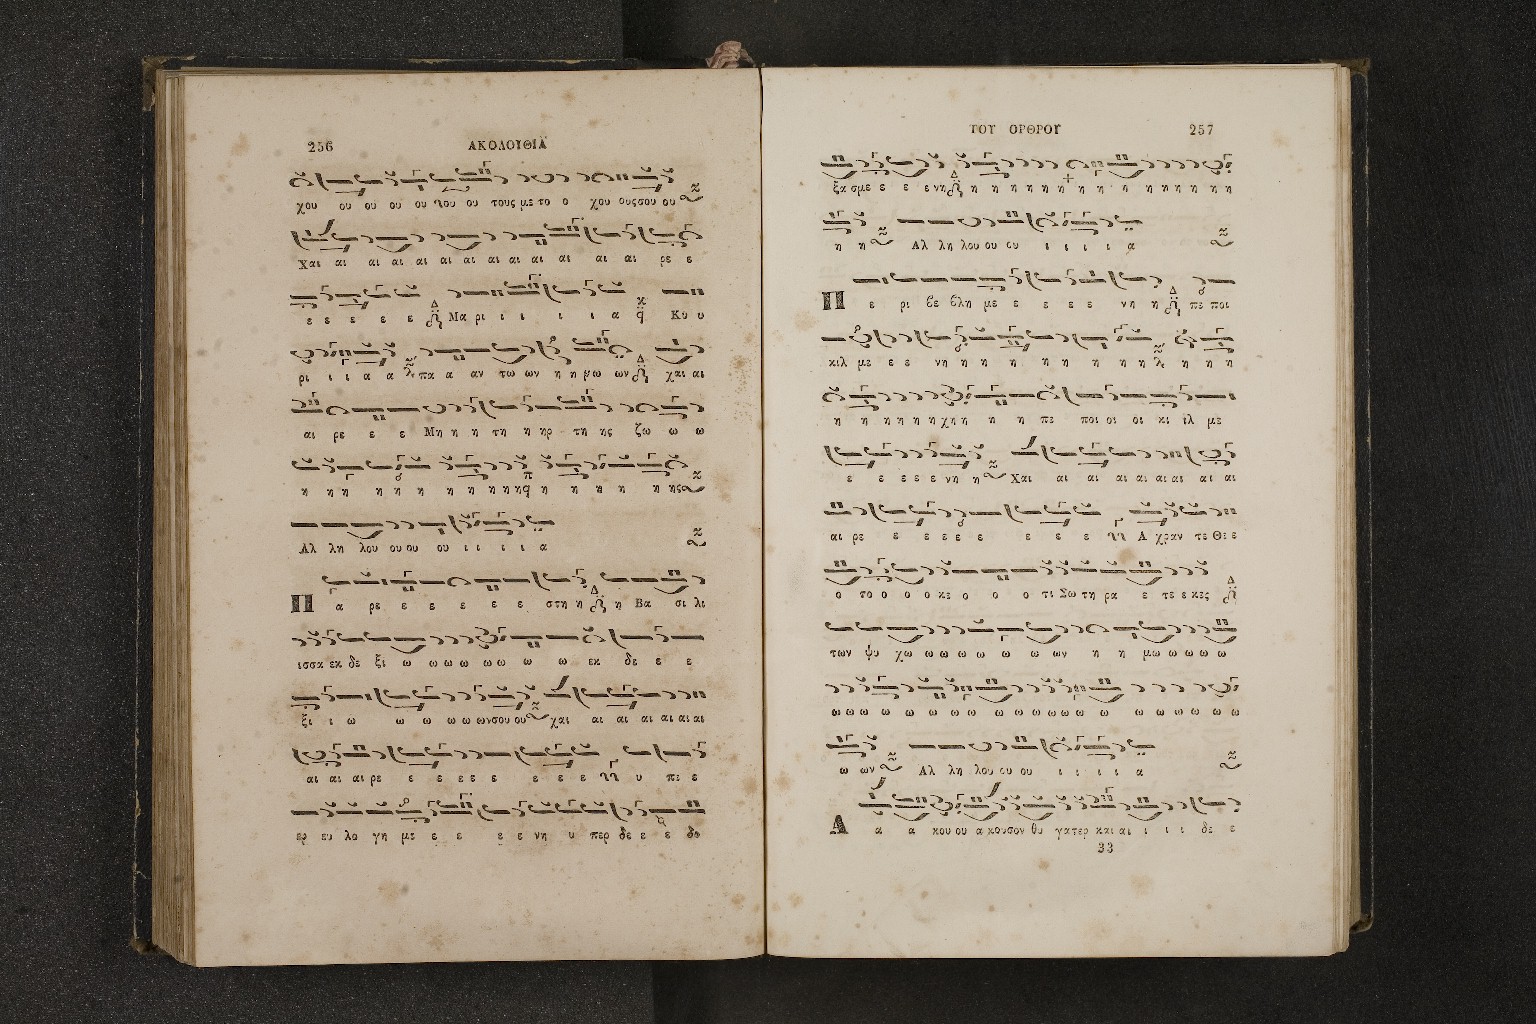 256 ΑΚΟΛΟΥΘΙΑ
χου ου ου ου ου του ου τους με το ο χου ουςσου ου
Χαι αι αι αι αι αι αι αι αι αι αι αι αι ρε ε
ε ε ε ε ε Μα ρι ι ι ι ι α Κυ υ
ρι ι ι α α πα α αν τω ων η η μω ων χαι αι
αι ρε ε ε Μη η η τη η ηρ τη ης ζω ω ω
η η η η η η η η η η η η η η η η ης
Αλ λη λου ου ου ου ι ι ι ι α
Π α ρε ε ε ε ε ε στη η η Βα σι λι
ισσα εκ δε ξι ω ω ω ω ω ω ω ω εκ δε ε ε
ξι ι ι ω ω ω ω ω ω ωνσου ου χαι αι αι αι αι αι αι
αι αι αι ρε ε ε ε ε ε ε ε ε υ πε ε
ευ λο γη με ε ε ε ε νη υ περ δε ε ε δο
ΤΟΥ ΟΡΘΡΟΥ 257
ξα σμε ε ε ε νη η η η η η η η η η η η η η η η
η η Αλ λη λου ου ου ι ι ι ι α
Π ε ρι βε βλη με ε ε ε ε νη η πε ποι
κιλ με ε ε νη η η η η η η η η η η η
η η η η η η χη η η η πε ποι οι οι κι ιλ με
ε ε ε ε ε νη η Χαι αι αι αι αι αι αι αι αι
αι ρε ε ε ε ε ε ε ε ε Α χραν τε Θε ε
ο το ο ο ο κε ο ο ο τι Σω τη ρα ε τε ε κες
των ψυ χω ω ω ω ω ω ω ων η η μω ω ω ω ω
ω ω ω ω ω ω ω ω ω ω ω ω ω ω ω ω ω ω ω ω
ω ων Αλ λη λου ου ου ι ι ι ι α
Α α α κου ου α κουσον θυ γατερ και αι ι ι ι δε ε
33